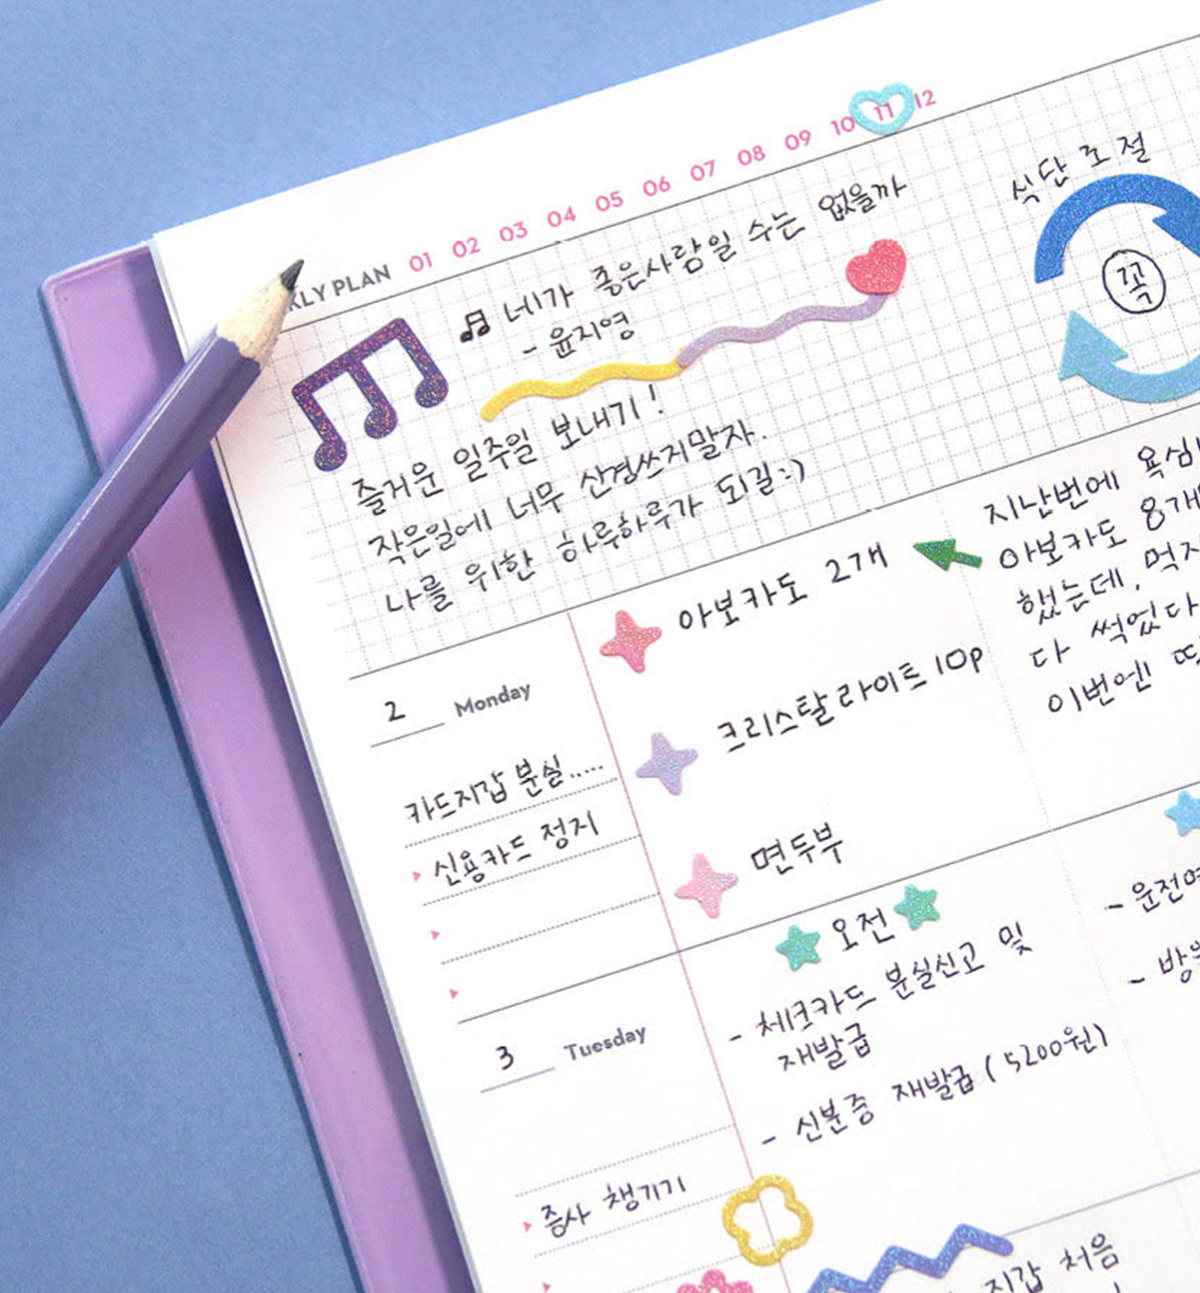 KLY PLAN 01 02 03 04 05 06 07 08 09 10 11 12
네가 좋은사람일 수는 없을까
- 윤지영
즐거운 일주일 보내기!
작은일에 너무 신경쓰지말자.
나를 위한 하루하루가 되길:)
식단 조절
꼭
2 Monday
카드지갑 분실.....
신용카드 정지
아보카도 2개
크리스탈라이트 10p
면두부
지난번에 욕심
아보카도 8개
했는데, 먹지
다 썩었다
이번엔
3 Tuesday
증사 챙기기
오전
- 체크카드 분실신고 및
재발급
- 신분증 재발급 (5200원)
- 운전면
-
지갑 처음